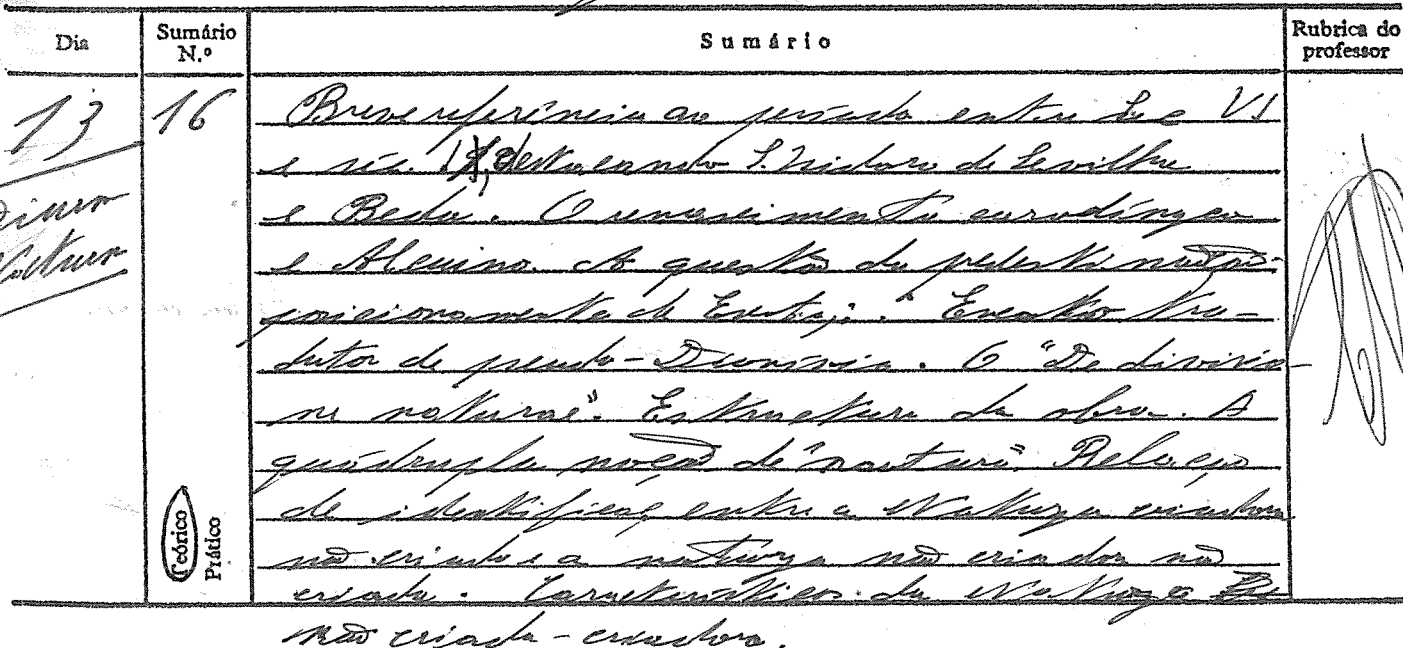 Dia Sumário N.º Sumário Rubrica do professor
13 16 Breve referência ao período entre séc VI
e séc. IX, destacando S. Isidoro de Sevilha
e Beda. O renascimento carolíngeo
e Alcuino. A questão da predestinação:
posicionamento de
tra-
dutor de pseudo-Dionísio. O "De divisio-
ne naturae". Estructura da obra. A
quádrupla noção de "natura". Relação
de entre a Natureza criadora
não criada e a natureza não criadora não
criada. Características da Natureza
não criada - criadora.
Diurno
Nocturno
Teórico
Prático